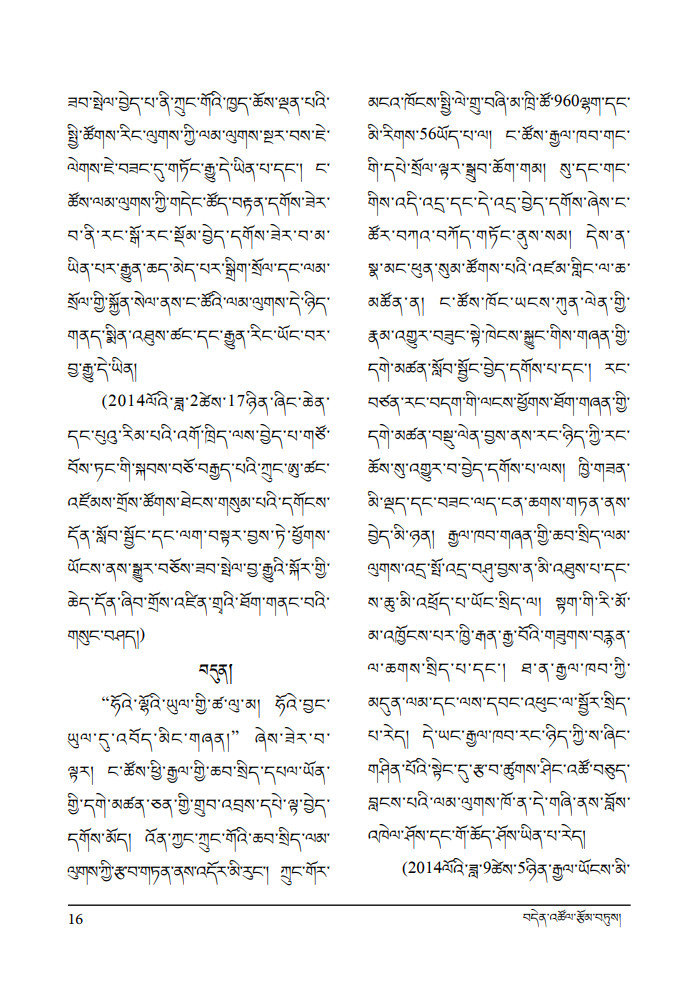 ཟབ་སྤེལ་བྱེད་པ་ནི་ཀྲུང་གོའི་ཁྱད་ཆོས་ལྡན་པའི་
སྤྱི་ཚོགས་རིང་ལུགས་ཀྱི་ལམ་ལུགས་སྔར་བས་ཇེ་
ལེགས་ཇེ་བཟང་དུ་གཏོང་རྒྱུ་དེ་ཡིན་པ་དང་། ང་
ཚོས་ལམ་ལུགས་ཀྱི་གདེང་ཚོད་བརྟན་དགོས་ཟེར་
བ་ནི་རང་སྒོ་རང་སྡོམ་བྱེད་དགོས་ཟེར་བ་མ་
ཡིན་པར་རྒྱུན་ཆད་མེད་པར་སྒྲིག་སྲོལ་དང་ལམ་
སྲོལ་གྱི་སྐྱོན་སེལ་ནས་ང་ཚོའི་ལམ་ལུགས་དེ་ཉིད་
གནད་སྨིན་འཐུས་ཚང་དང་རྒྱུན་རིང་ཡོང་བར་
བྱ་རྒྱུ་དེ་ཡིན།
(2014ལོའི་ཟླ་2ཚེས་17ཉིན་ཞིང་ཆེན་
དང་པུའུ་རིམ་པའི་འགོ་ཁྲིད་ལས་བྱེད་པ་གཙོ་
བོས་ཏང་གི་སྐབས་བཅོ་བརྒྱད་པའི་ཀྲུང་ཨུ་ཚང་
འཛོམས་གྲོས་ཚོགས་ཐེངས་གསུམ་པའི་དགོངས་
དོན་སློབ་སྦྱོང་དང་ལག་བསྟར་བྱས་ཏེ་ཕྱོགས་
ཡོངས་ནས་སྒྱུར་བཅོས་ཟབ་སྤེལ་བྱ་རྒྱུའི་སྐོར་གྱི་
ཆེད་དོན་ཞིབ་གྲོས་འཛིན་གྲྭའི་ཐོག་གནང་བའི་
གསུང་བཤད།)
བདུན།
“ཧོའེ་ལྷོའི་ཡུལ་གྱི་ཚ་ལུ་མ། ཧོའེ་བྱང་
ཡུལ་དུ་འབོད་མིང་གཞན།” ཞེས་ཟེར་བ་
ལྟར། ང་ཚོས་ཕྱི་རྒྱལ་གྱི་ཆབ་སྲིད་དཔལ་ཡོན་
གྱི་དགེ་མཚན་ཅན་གྱི་གྲུབ་འབྲས་དཔེ་ལྟ་བྱེད་
དགོས་མོད། འོན་ཀྱང་ཀྲུང་གོའི་ཆབ་སྲིད་ལམ་
ལུགས་ཀྱི་རྩ་བ་གཏན་ནས་འདོར་མི་རུང་། ཀྲུང་གོར་
མངའ་ཁོངས་སྤྱི་ལེ་གྲུ་བཞི་མ་ཁྲི་ཚོ་960ལྷག་དང་
མི་རིགས་56ཡོད་པ་ལ། ང་ཚོས་རྒྱལ་ཁབ་གང་
གི་དཔེ་སྲོལ་ལྟར་སྒྲུབ་ཆོག་གམ། སུ་དང་གང་
གིས་འདི་འདྲ་དང་དེ་འདྲ་བྱེད་དགོས་ཞེས་ང་
ཚོར་བཀའ་བཀོད་གཏོང་ནུས་སམ། དེས་ན་
སྣ་མང་ཕུན་སུམ་ཚོགས་པའི་འཛམ་གླིང་ལ་ཆ་
མཚོན་ན། ང་ཚོས་ཁོང་ཡངས་ཀུན་ལེན་གྱི་
རྣམ་འགྱུར་བཟུང་སྟེ་ཁེངས་སྐྱུང་གིས་གཞན་གྱི་
དགེ་མཚན་སློབ་སྦྱོང་བྱེད་དགོས་པ་དང་། རང་
བཙན་རང་བདག་གི་ལངས་ཕྱོགས་ཐོག་གཞན་གྱི་
དགེ་མཚན་བསྡུ་ལེན་བྱས་ནས་རང་ཉིད་ཀྱི་རང་
ཆོས་སུ་འགྱུར་བ་བྱེད་དགོས་པ་ལས། ཁྱི་གཟན་
མི་ལྡད་དང་བཟང་ལད་ངན་ཆགས་གཏན་ནས་
བྱེད་མི་ཉན། རྒྱལ་ཁབ་གཞན་གྱི་ཆབ་སྲིད་ལམ་
ལུགས་འདྲ་སྤོ་འདྲ་བཤུ་བྱས་ན་མི་འཐུས་པ་དང་
ས་ཆུ་མི་འཕྲོད་པ་ཡོང་སྲིད་ལ། སྟག་གི་རི་མོ་
མ་འཁྱོངས་པར་ཁྱི་རྒན་རྒྱ་བོའི་གཟུགས་བརྙན་
ལ་ཆགས་སྲིད་པ་དང་། ཐ་ན་རྒྱལ་ཁབ་ཀྱི་
མདུན་ལམ་དང་ལས་དབང་འཕུང་ལ་སྦྱོར་སྲིད་
པ་རེད། དེ་ཡང་རྒྱལ་ཁབ་རང་ཉིད་ཀྱི་ས་ཞིང་
གཤིན་པོའི་སྟེང་དུ་རྩ་བ་ཚུགས་ཤིང་འཚོ་བཅུད་
བླངས་པའི་ལམ་ལུགས་ཁོ་ན་དེ་གཞི་ནས་བློས་
འཁེལ་ཤོས་དང་གོ་ཆོད་ཤོས་ཡིན་པ་རེད།
(2014ལོའི་ཟླ་9ཚེས་5ཉིན་རྒྱལ་ཡོངས་མི་
16
བདེན་འཚོལ་རྩོམ་བཏུས།